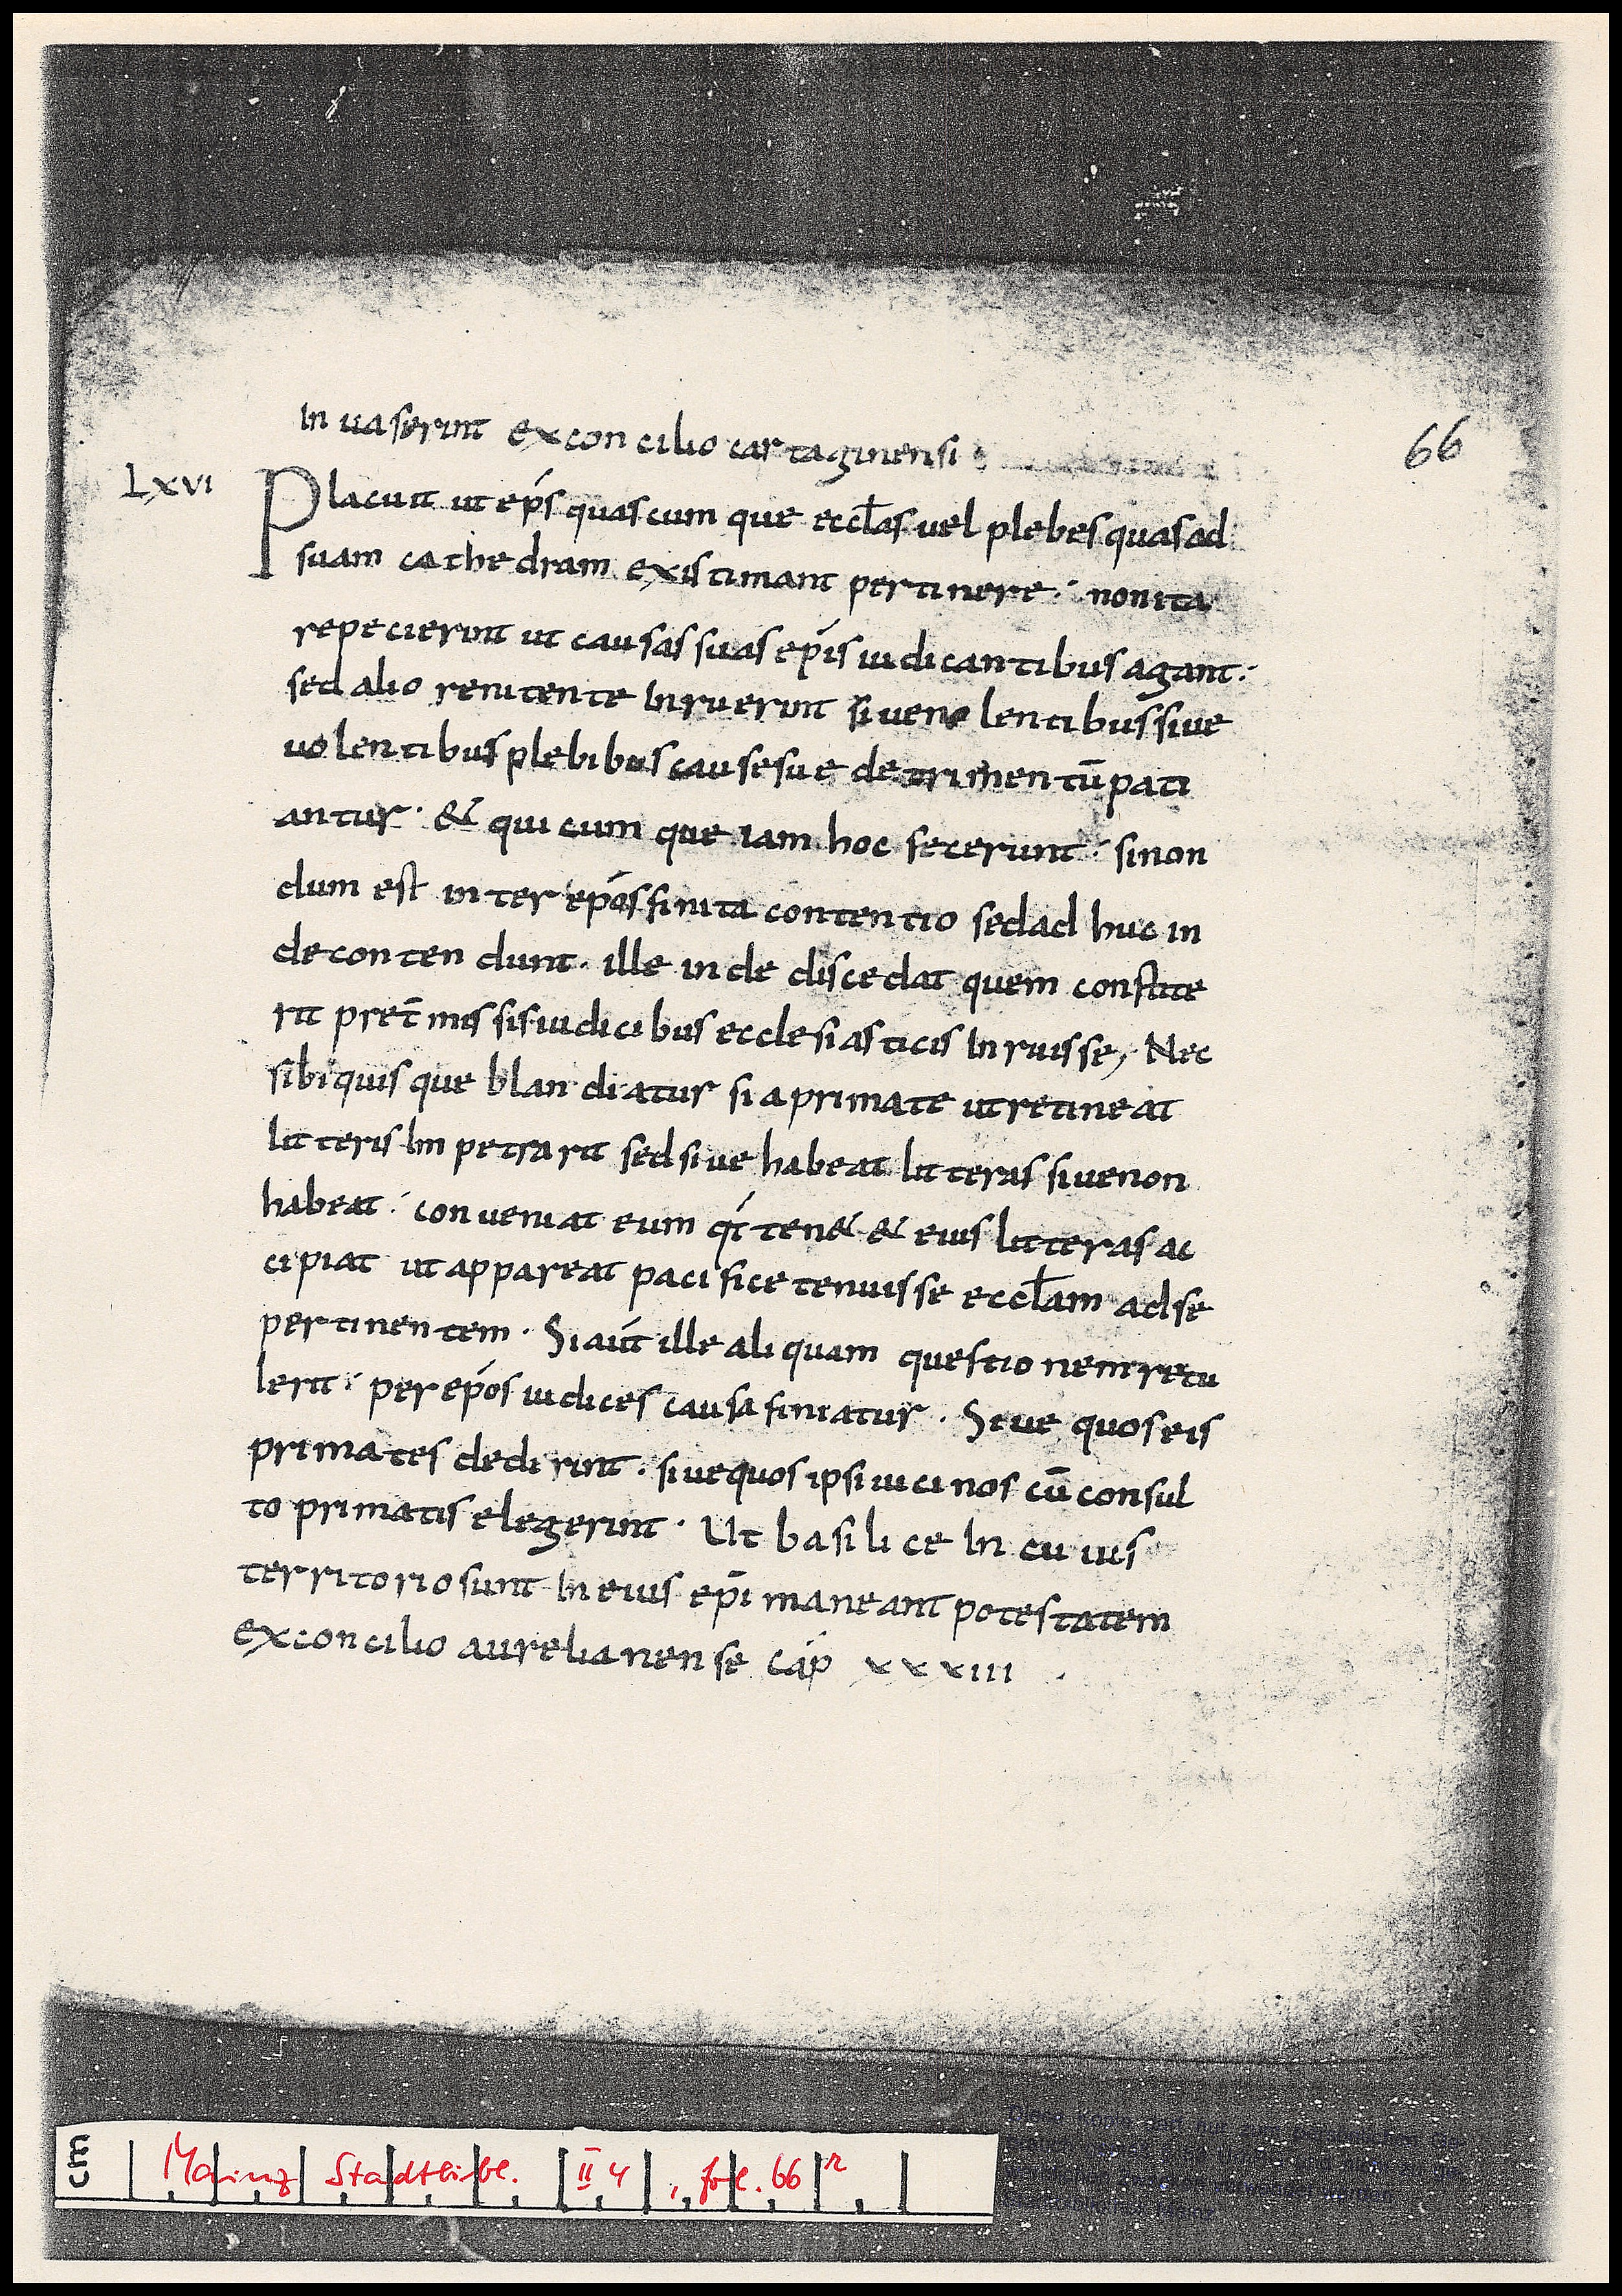 In uaserint ex con cilio cartaginensi
66
Lxvi
Placuit ut ep̅s quascum que eccl̅as uel plebes quas ad
suam cathedram existimant pertinere · non ita
repecierint ut causas suas ep̅is iudicantibus agant ·
sed alio renitente Inruerint siue nolentibus siue
uolentibus plebibus cause sue detrimentu̅ pati
antur · & qui cum que iam hoc fecerunt · si non
dum est inter ep̅os finita contentio sed ad huc in
de contendunt · ille inde discedat quem constite
rit pret̅missis iudicibus ecclesiasticis Inruisse, Nec
sibi quis que blandiatur si a primate ut retineat
litteris Impetrarit sed siue habeat litteras siue non
habeat · conueniat eum qi̅ ten& & eius litteras ac
cipiat ut appareat pacifice tenuisse eccl̅am ad se
pertinentem · Si au̅t ille aliquam questionem retu
lerit · per ep̅os iudices causa finiatur · Siue quos eis
primates dedirint · siue quos ipsi uicinos cu̅ consul
to primatis elegerint · Ut basilice In cuius
territorio sunt In eius ep̅i maneant potestatem
ex concilio aurelianense cap̅ xxxiii
cm
Mainz Stadtbibl. II 4, fol. 66 r